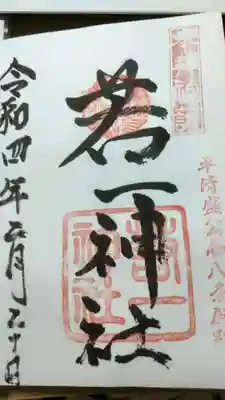 平清盛公西八条殿
若一神社
若一神社
令和四年月十日